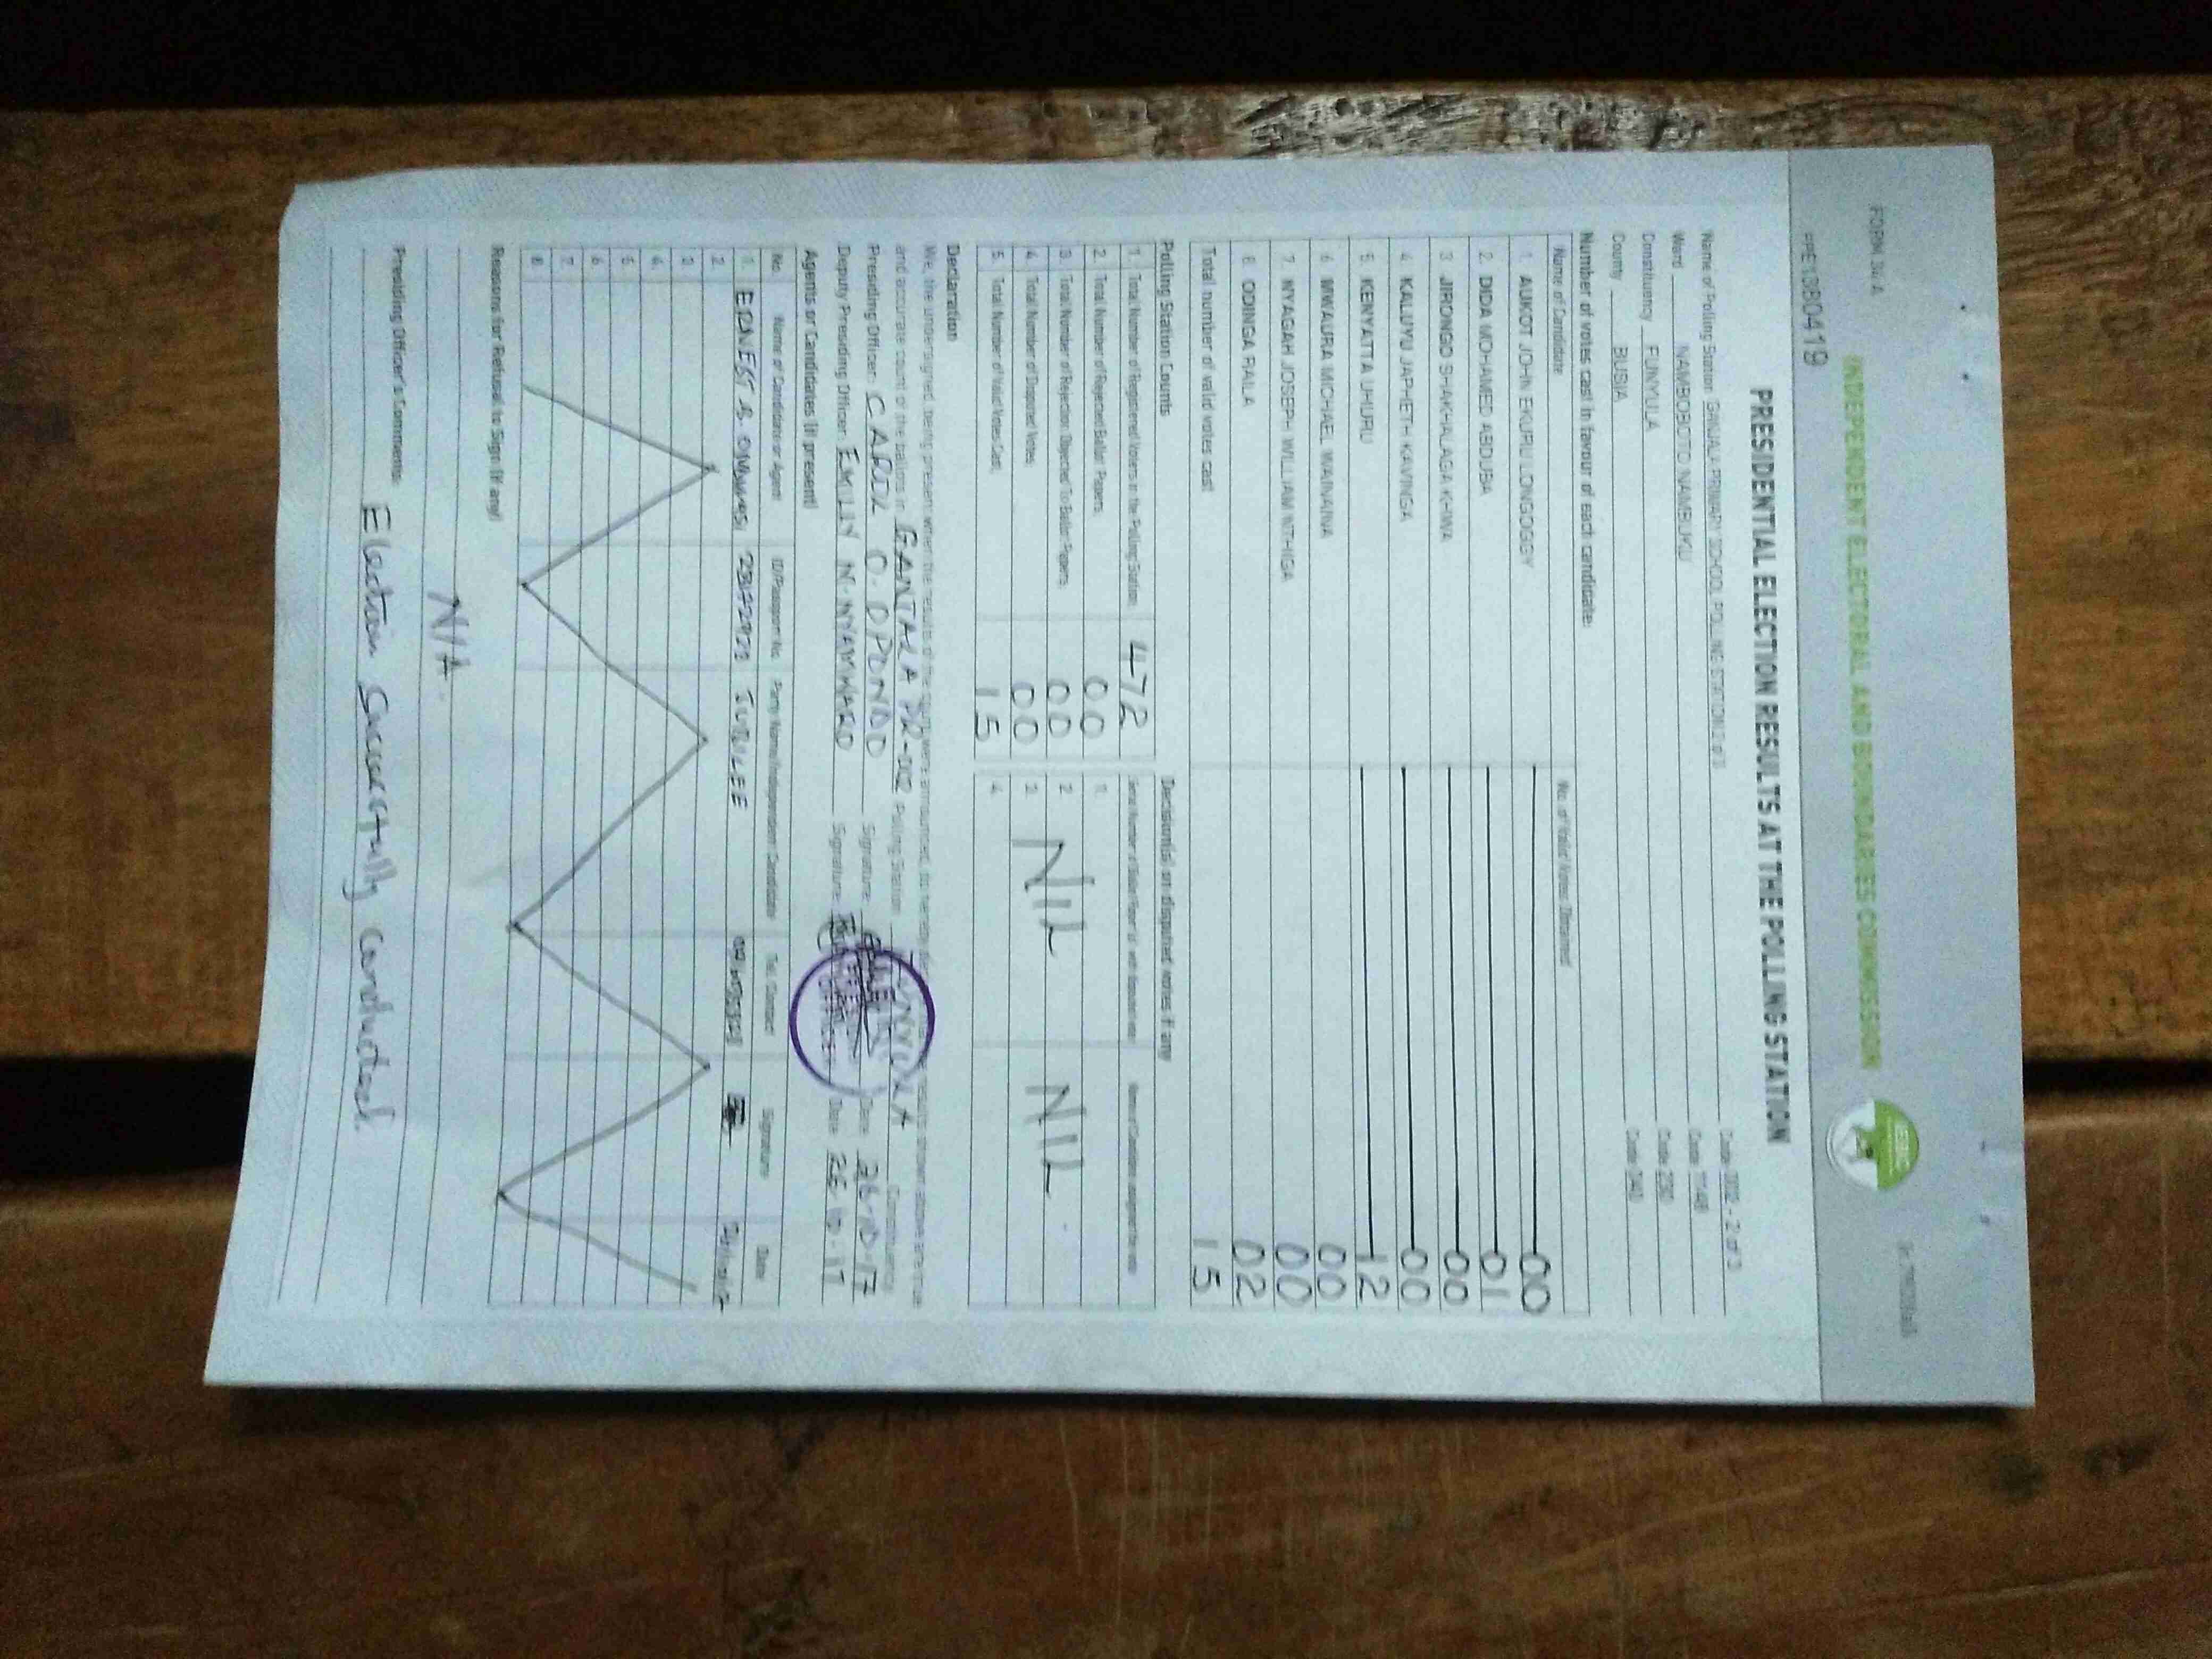 FORM 34 A
INDEPENDENT ELECTORAL AND BOUNDARIES COMMISSION
IEBC
PRE13B0419
PRESIDENTIAL ELECTION RESULTS AT THE POLLING STATION
Name of Polling Station PRIMARY SCHOOL POLLING STATION 2 of 3 Code 002 - 2 of 3
Ward NAMBOBOTO NAMBUKU Code 1148
Constituency FUNYULA Code 230
County BUSIA Code 040
Number of votes cast in favour of each candidate:
Name of Candidate No. of Valid Votes Obtained
1. AUKOT JOHN EKURU LONGOGGY 00
2. DIDA MOHAMED ABDUBA 01
3. JIRONGO SHAKHALAGA KHWA 00
4. KALUYU JAPHETH KAVINGA 00
5. KENYATTA UHURU 12
6. MWAURA MICHAEL WAINAINA 00
7. NYAGAH JOSEPH WILLIAM NTHIGA 00
8. ODINGA RAILA 02
Total number of valid votes cast 15
Polling Station Counts Decision(s) on disputed votes if any
1. Total Number of Registered Voters in the Polling Station 472
2. Total Number of Rejected Ballot Papers 00 1.
3. Total Number of Rejection Objected To Ballot Papers 00 2. NIL NIL
4. Total Number of Disputed Votes 00 3.
5. Total Number of Valid Votes Cast 15 4.
Declaration
We, the undersigned, being present when the results of the count were announced, do hereby results shown above are true
and accurate count of the ballots in Polling Station FUNYULA Constituency
Presiding Officer: CAROL O. OPONDO Signature: Date 26-10-17
Deputy Presiding Officer: EMILLY N. NYAMWARO Signature: Date 26-10-17
Agents or Candidates (if present)
No. Name of Candidate or Agent ID/Passport No. Party Name/Independent Candidate Tel. Contact Signature Date
1. ERNEST B. JUBILEE
2.
3.
4.
5.
6.
7.
8.
Reasons for Refusal to Sign (if any)
N/A.
Presiding Officer's Comments: Election Successfully Conducted